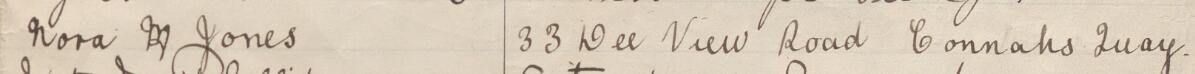 Nora M Jones 33 Dee View Road Connahs Quay.